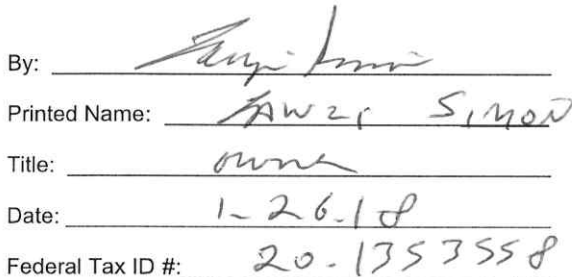 By: 
Printed Name: FAWZI SIMON
Title: owner
Date: 1-26-18
Federal Tax ID #: 20-1353558